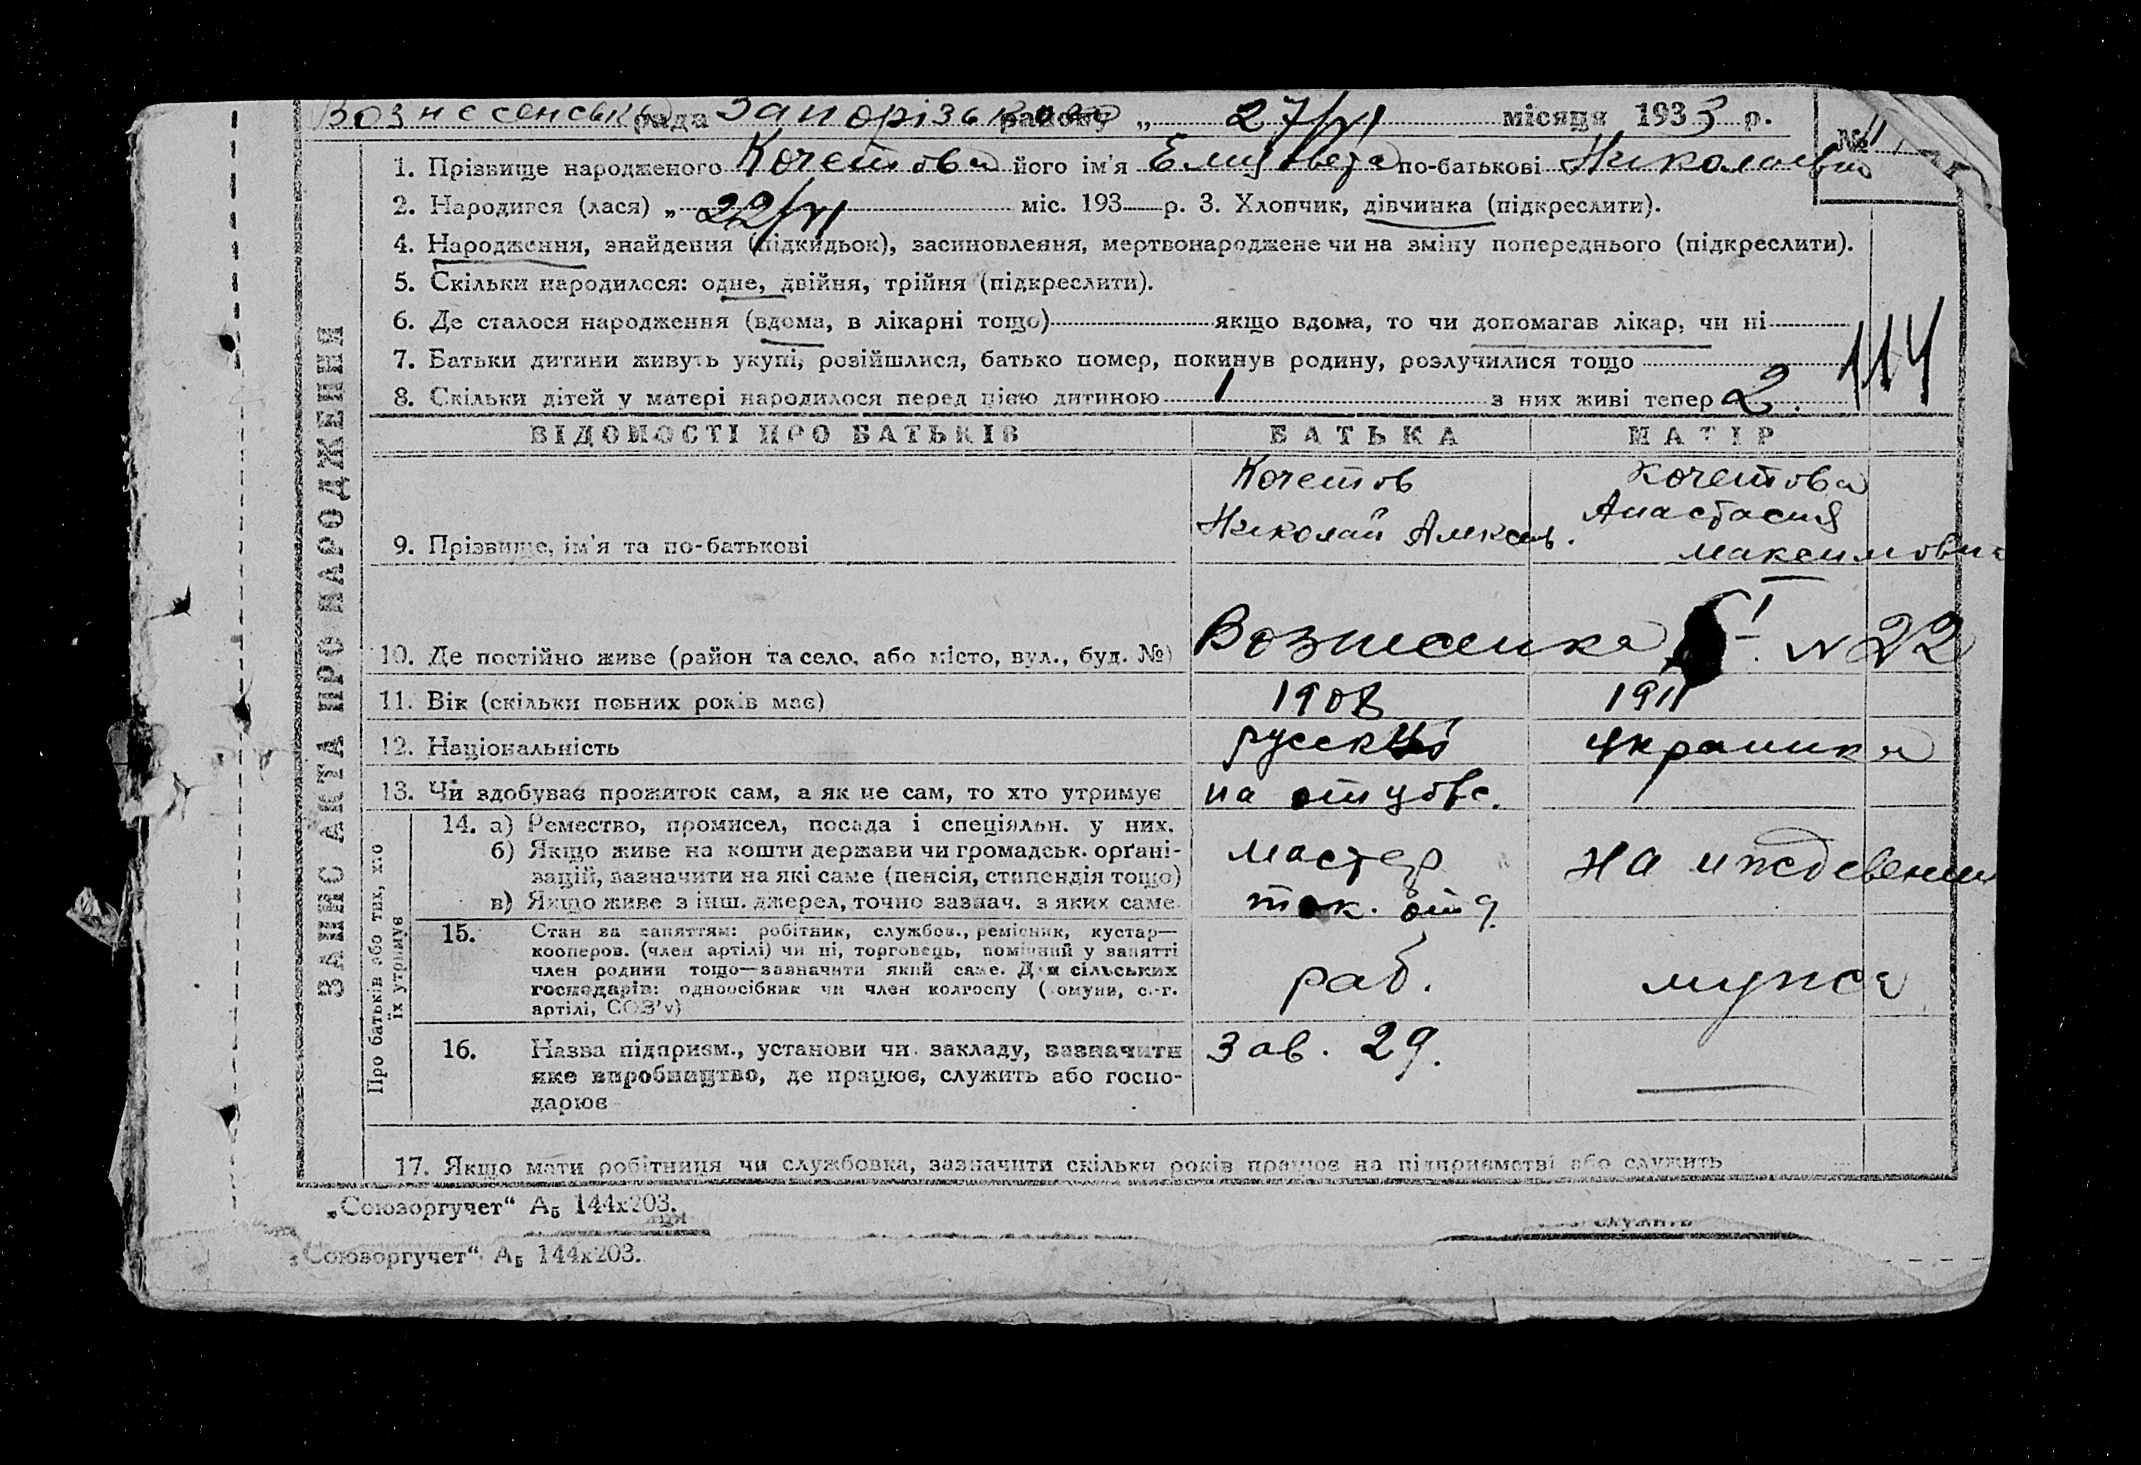 Вознесенська рада Запорізького району „ 27/VI місяця 1933 р.
№ 11
1. Прізвище народженого Кочетова його ім'я Елизавета по-батькові Николаевна
2. Народився (лася) „ 22/VI міс. 193 р. 3. Хлопчик, дівчинка (підкреслити).
4. Народження, знайдення (підкидьок), засиновлення, мертвонароджене чи на зміну попереднього (підкреслити).
5. Скільки народилося: одне, двійня, трійня (підкреслити).
6. Де сталося народження (вдома, в лікарні тощо) якщо вдома, то чи допомагав лікар, чи ні
7. Батьки дитини живуть укупі, розійшлися, батько помер, покинув родину, розлучилися тощо
114
8. Скільки дітей у матері народилося перед цією дитиною 1 з них живі тепер 2.
ЗАПИС АКТА ПРО НАРОДЖЕННЯ
ВІДОМОСТІ ПРО БАТЬКІВ БАТЬКА МАТІР
Кочетов Кочетова
Николай Алексеев. Анастасия
9. Прізвище, ім'я та по-батькові Максимовна
10. Де постійно живе (район та село, або місто, вул., буд. №) Вознесенка N 22
11. Вік (скільки повних років має) 1908 1911
12. Національність русский украинка
13. Чи здобуває прожиток сам, а як не сам, то хто утримує на
Про батьків або тих, хто їх утримує
14. а) Ремество, промисел, посада і спеціяльн. у них.
б) Якщо живе на кошти держави чи громадськ. орґані-
зацій, зазначити на які саме (пенсія, стипендія тощо) мастер на иждевении
в) Якщо живе з інш. джерел, точно зазнач. з яких саме ток.
15. Стан за заняттям: робітник, службов., ремісник, кустар—
кооперов. (член артілі) чи ні, торговець, помічний у занятті
член родини тощо—зазначити який саме. Для сільських раб. мужа
господарів: одноосібник чи член колгоспу (комуни, с.-г.
артілі, СОЗ'у)
16. Назва підприєм., установи чи закладу, зазначити Зав. 29.
яке виробництво, де працює, служить або госпо-
дарює
17. Якщо мати робітниця чи службовка, зазначити скільки років працює на підприємстві або служить
„Союзоргучет“ А₅ 144х203.
служить
„Союзоргучет“ А₅ 144х203.